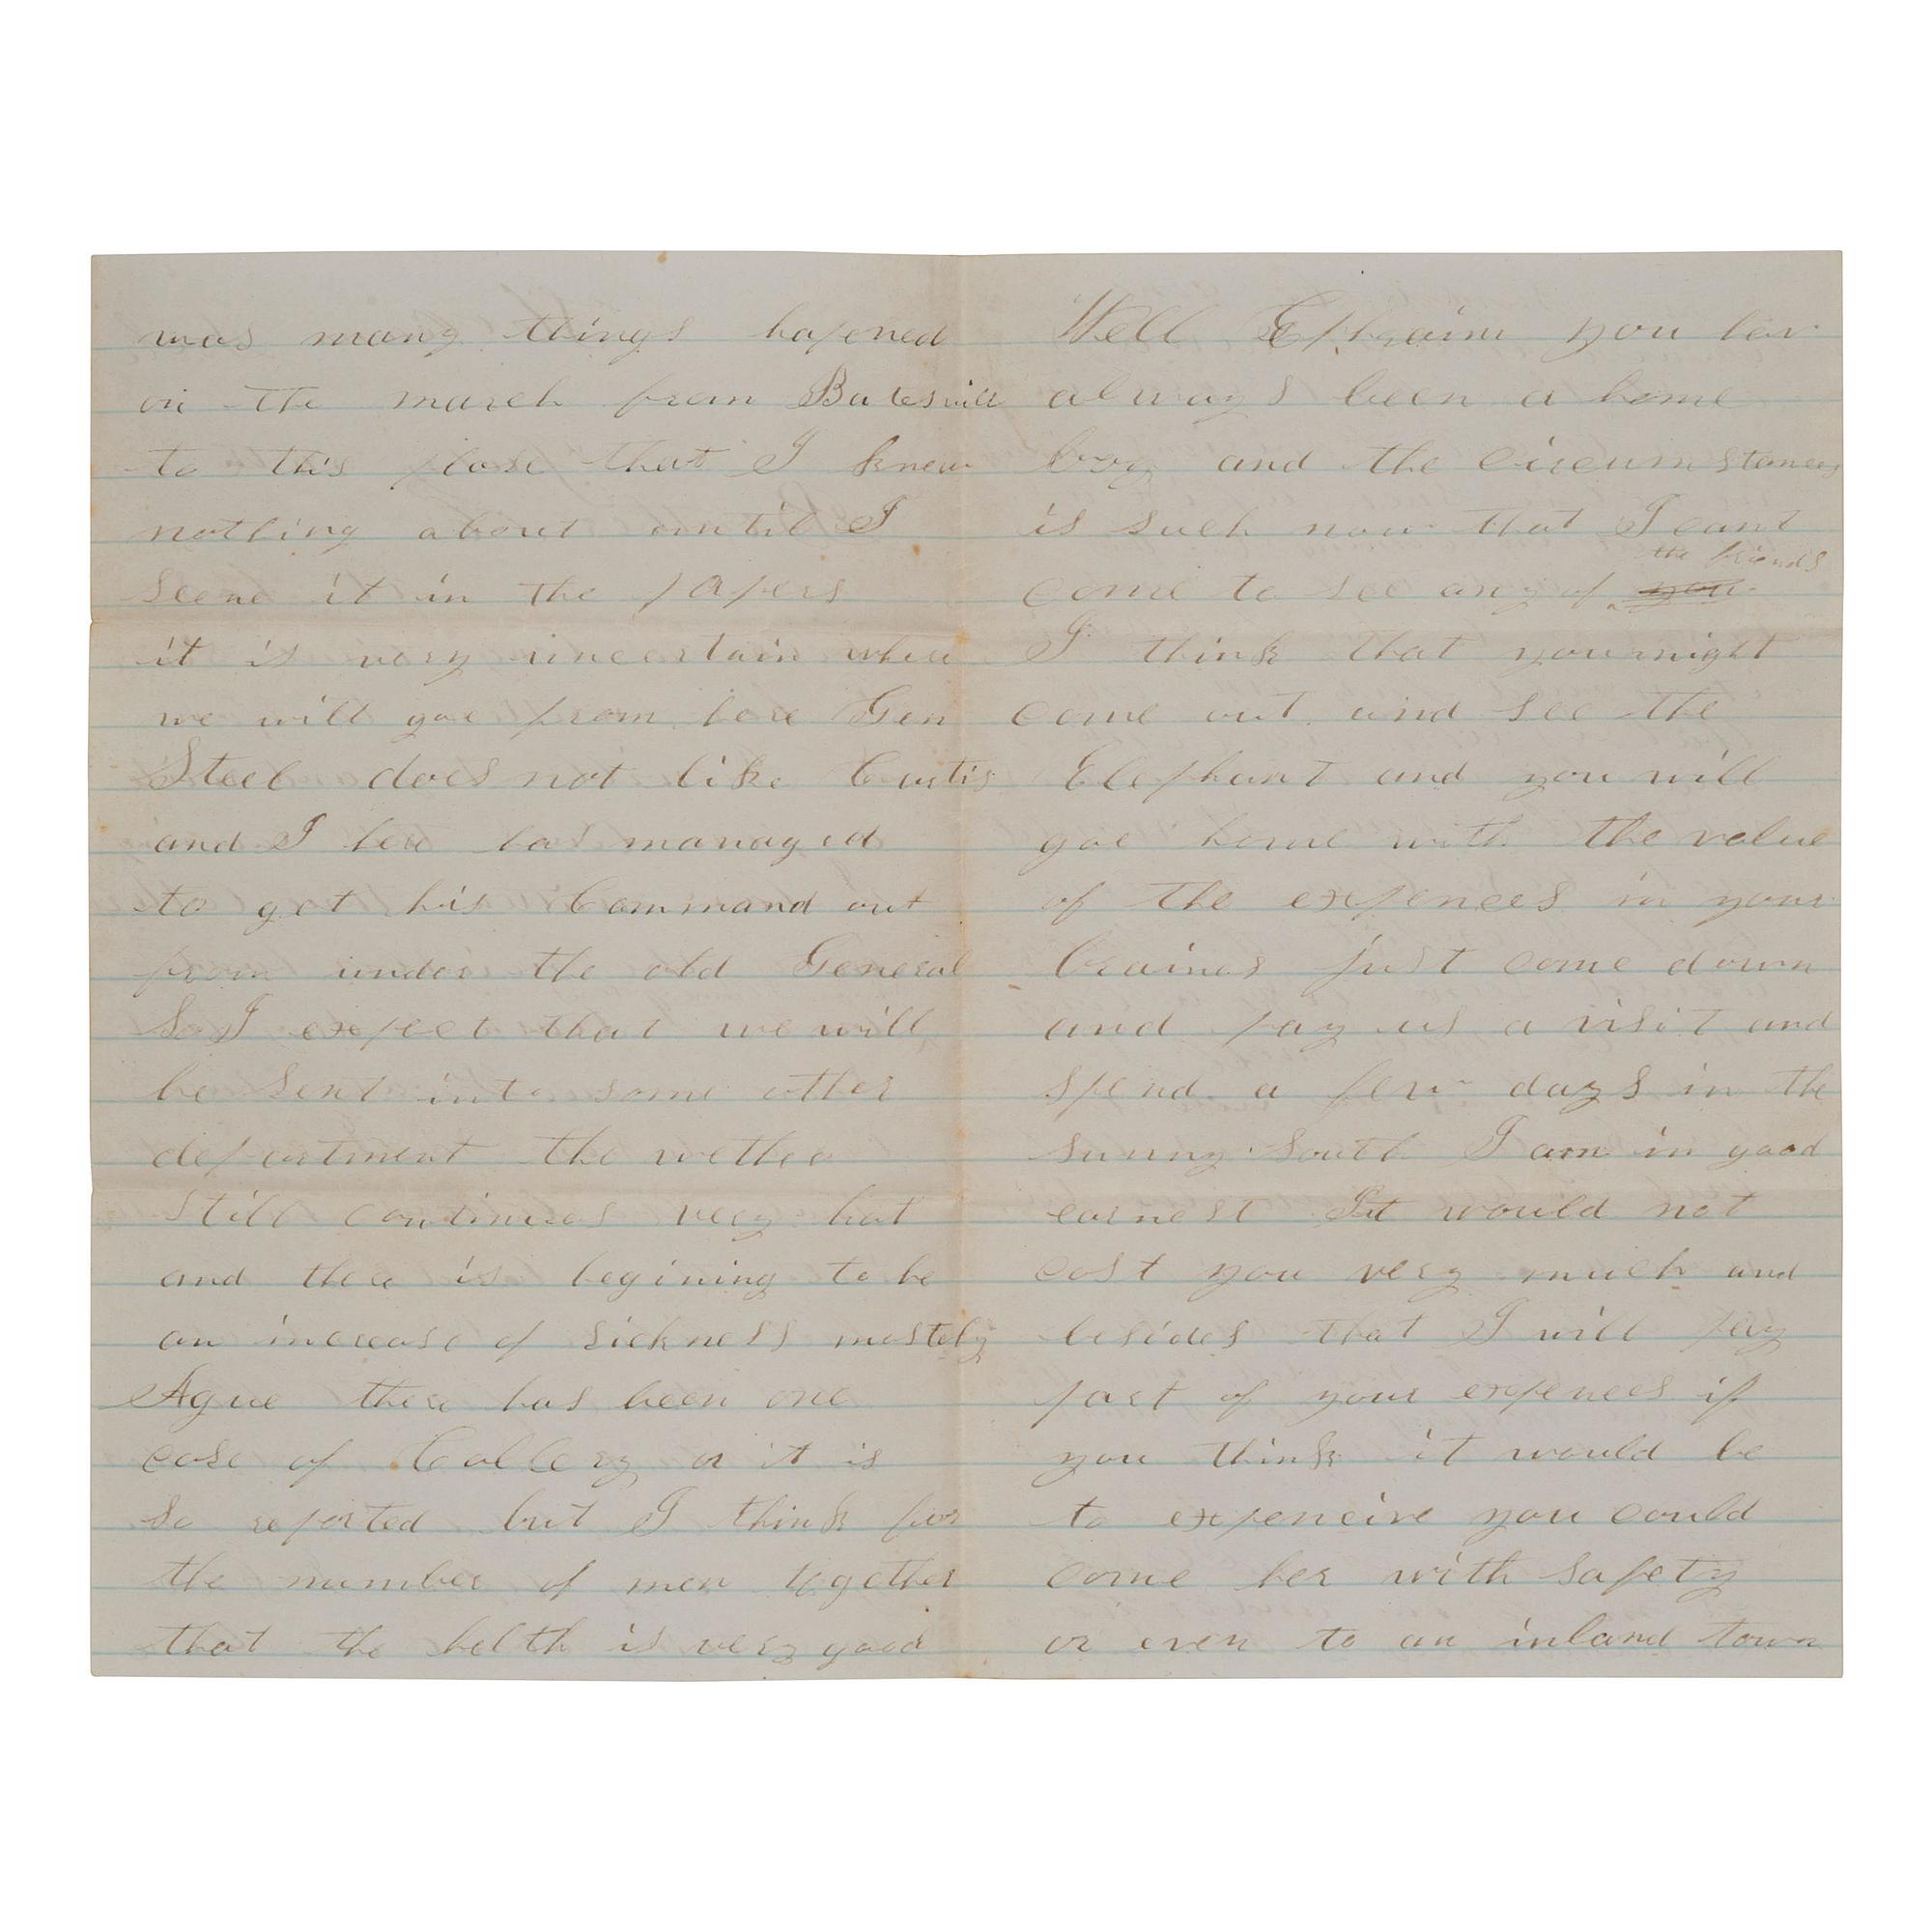 was many things hapened
on the march from Batesvill
to this plase that I knew
nothing about until I
scene it in the papers
it is very uncertain when
we will goe from here Gen
Steel does not like Curtis
and I hea has managed
to get his Command out
from under the old General
So I expect that we will
be sent into some other
department the wether
still continues very hot
and thea is begining to be
an increase of sickness mostely
Ague there has been one
case of Collery or it is
so reported but I think for
the number of men together
that the helth is very good
Well Ephraim you hav
always been a home
boy and the circumstances
is such now that I cant
the friends
come to see any of you
I think that you might
come out and see the
Elephant and you will
goe home with the value
of the expences in your
braines just come down
and pay us a visit and
spend a few days in the
sunny South I am in good
earnest It would not
cost you very much and
besides that I will pay
part of your expences if
you think it would be
to expencive you could
come her with safety
or even to an inland town